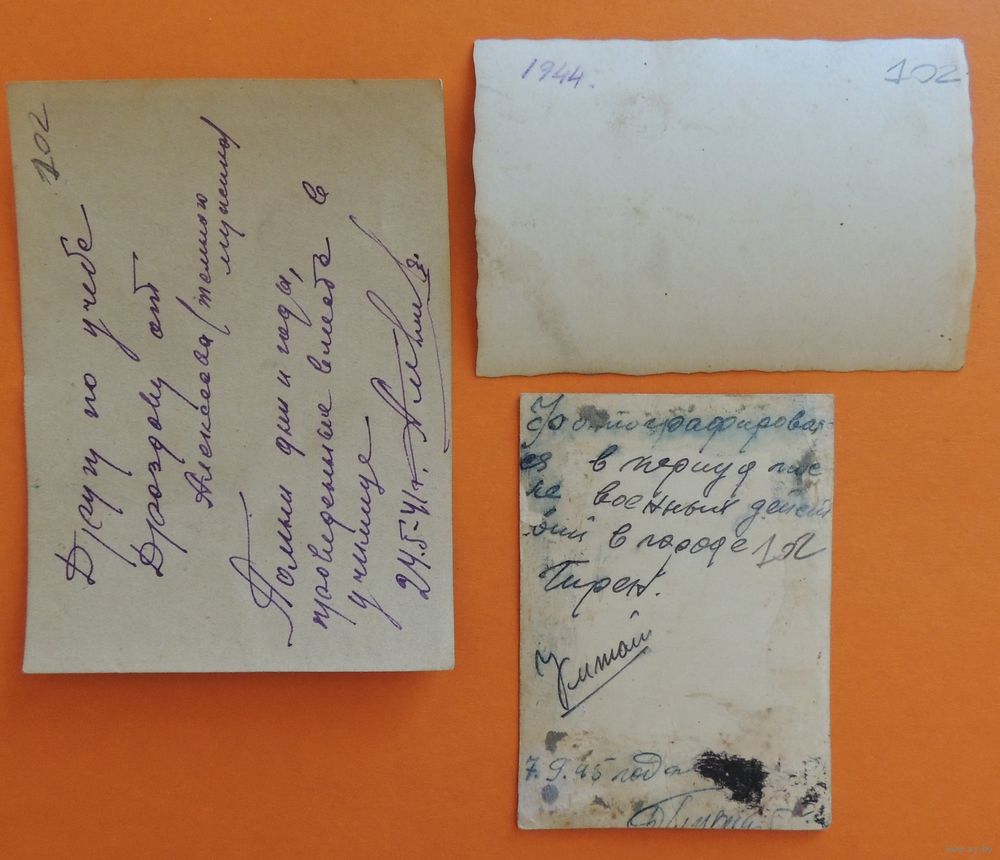 102
Другу по учебе
Дроздову от
Алексеева (темного
мужчины)
Помни дни и года,
проведенные вместе в
училище
24.5-41 г.
1944.
102
Фотографировал
ся в период пос
ле военных дейст
вий в городе
102
7.9.45 года